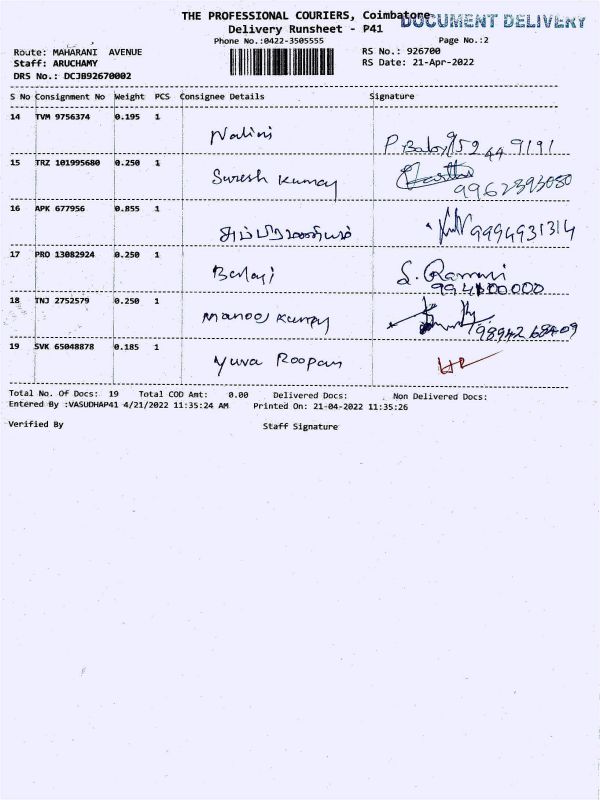 THE PROFESSIONAL COURIERS, Coimbatore
DOCUMENT DELIVERY
Delivery Runsheet - P41
Phone No.:0422-3505555
Page No.:2
Route: MAHARANI AVENUE
RS No.: 926700
Staff: ARUCHAMY
RS Date: 21-Apr-2022
DRS No.: DCJB92670002
S No Consignment No Weight PCS Consignee Details Signature
14 TVM 9756374 0.195 1
Nalini P. Baby 952449191
15 TRZ 101995680 0.250 1
Suresh Kumar 9962393080
16 APK 677956 0.855 1
சுப்பிரமணியம் 9994931314
17 PRO 13082924 0.250 1
Balaji S. Ramani
18 TNJ 2752579 0.250 1
Manoj Kumar 9894268409
19 SVK 65048878 0.185 1
Yuva Roopan
Total No. Of Docs: 19 Total COD Amt: 0.00 Delivered Docs: Non Delivered Docs:
Entered By :VASUDHAP41 4/21/2022 11:35:24 AM Printed On: 21-04-2022 11:35:26
Verified By Staff Signature